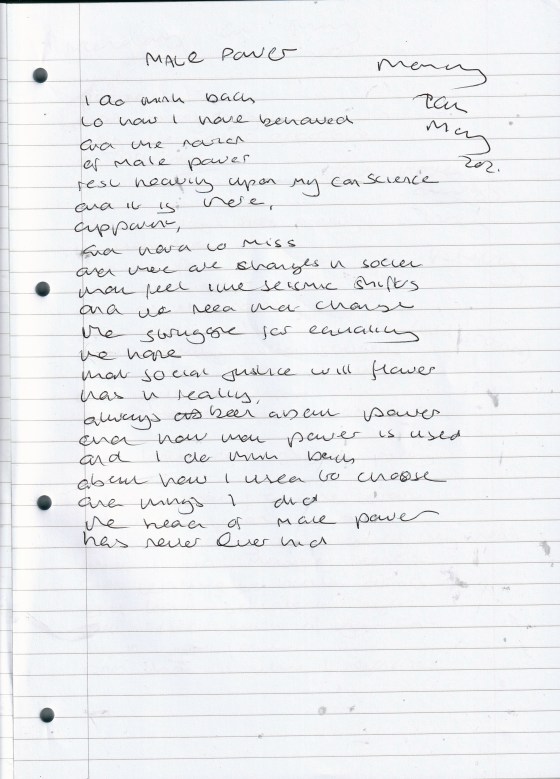 MALE POWER
Monday
10th
May
202.
I do think back
to how I have behaved
and the notion
of male power
rest heavily upon my conscience
and it is there,
apparent,
and hard to miss
and there are changes in society
that feel like seismic shifts
and we need that change
the struggle for equality
the hope
that social justice will flower
has in reality,
always been about power
and how that power is used
and I do think back
about how I used to choose
the things I did
the head of male power
has never hid